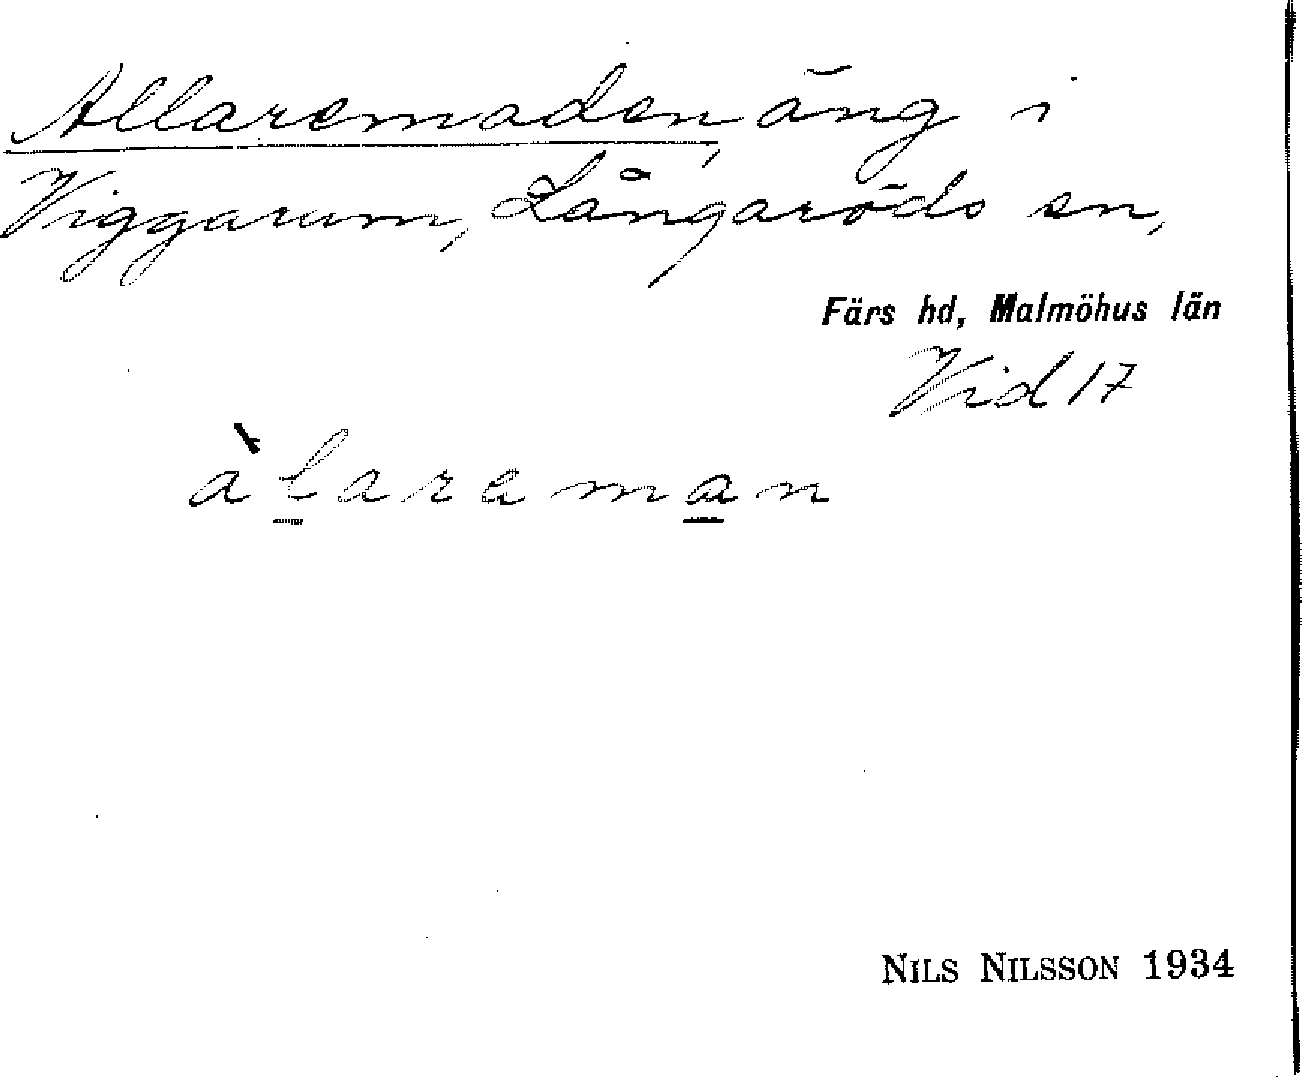 Allaremaden, äng i
Viggarum, Långaröds sn,
Färs hd, Malmöhus län
Vid 17
àlareman
NILS NILSSON 1934